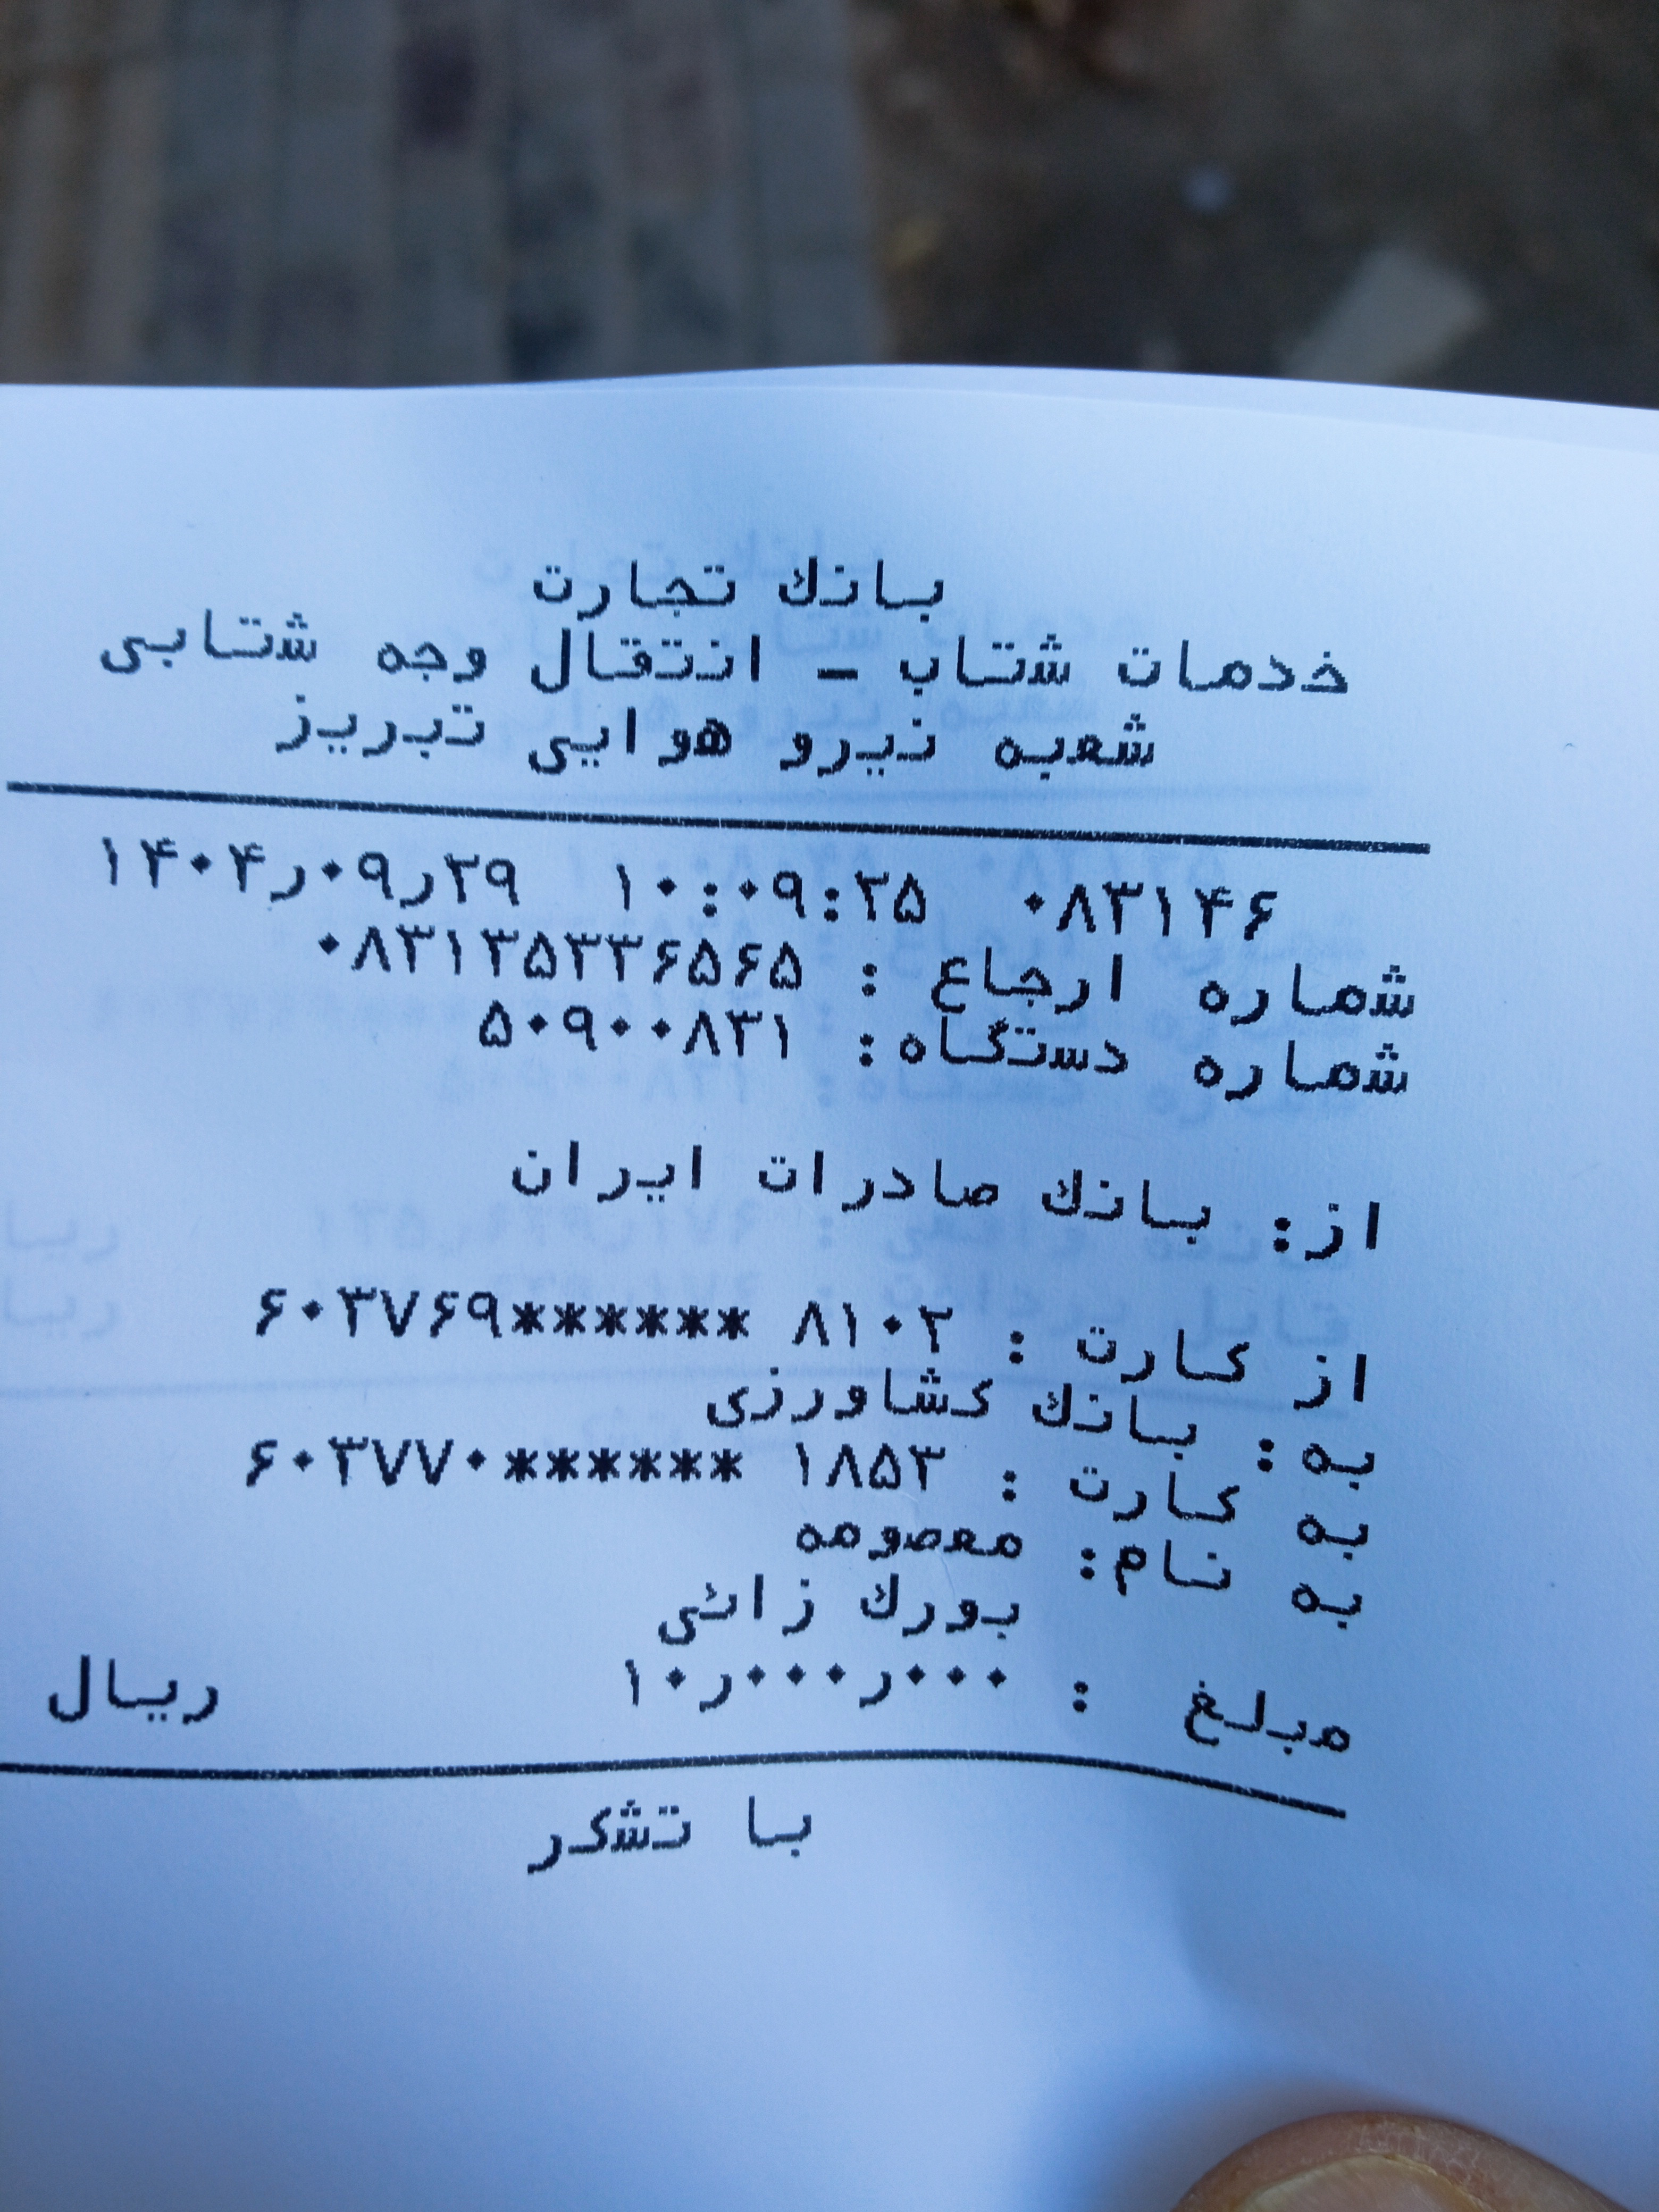 بانك تجارت
خدمات شتاب - انتقال وجه شتابی
شعبه نیرو هوایی تبریز
۰۸۳۱۴۶ ۱۰:۰۹:۲۵ ۱۴۰۴ر۰۹ر۲۹
شماره ارجاع : ۰۸۳۱۲۵۳۳۶۵۶۵
شماره دستگاه: ۵۰۹۰۰۸۳۱
از: بانك صادرات ایران
از کارت : ۶۰۳۷۶۹****** ۸۱۰۲
به: بانك کشاورزی
به کارت : ۶۰۳۷۷۰****** ۱۸۵۳
به نام: معصومه
بورك زائی
مبلغ : ۱۰ر۰۰۰ر۰۰۰ ریال
با تشکر